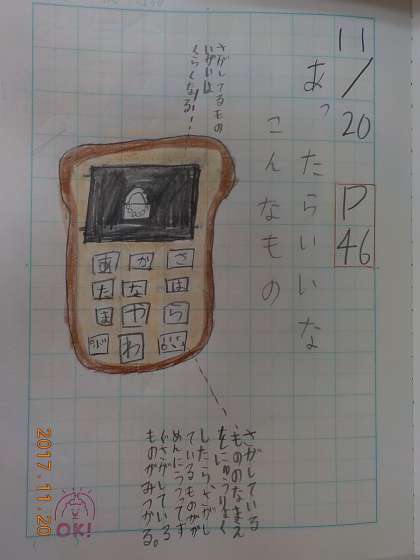 11/20
P46
あったらいいな
こんなもの
さがしてるもの
いがいは
くらくなる!
あ か さ
た な は
ま や ら
わ
さがしている
もののなまえ
をにゅうりょく
したら、さがし
ているものがが
めんにうつってす
ぐさがしている
ものがみつかる。
2017.11.20
OK!